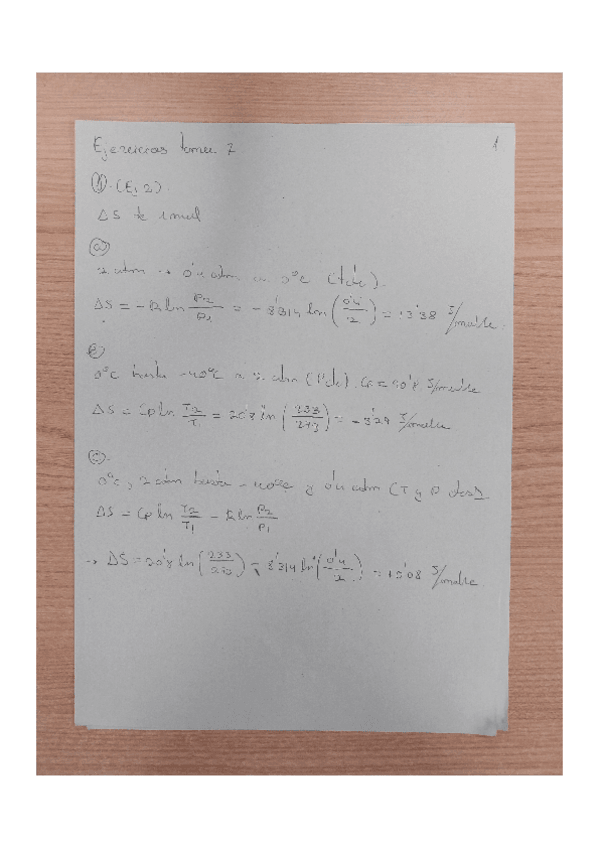 Ejercicios tema 2
1
① (Ej 2).
ΔS de 1 mol
ⓐ
2 atm → 0'4 atm a 0ºC (T cte).
ΔS = -R ln P2/P1 = - 8'314 ln (0'4/2) = 13'38 J/molK.
0ºC hasta -40ºC a atm (P cte). Cp = 20'8 J/molK
ΔS = Cp ln T2/T1 = 20'8 ln (233/273) = -3'29 J/molK
0ºC, 2 atm hasta -40ºC y 0'4 atm (T y P
ΔS = Cp ln T2/T1 - R ln P2/P1
→ ΔS = 20'8 ln (233/273) - 8'314 ln (0'4/2) = 10'08 J/molK.